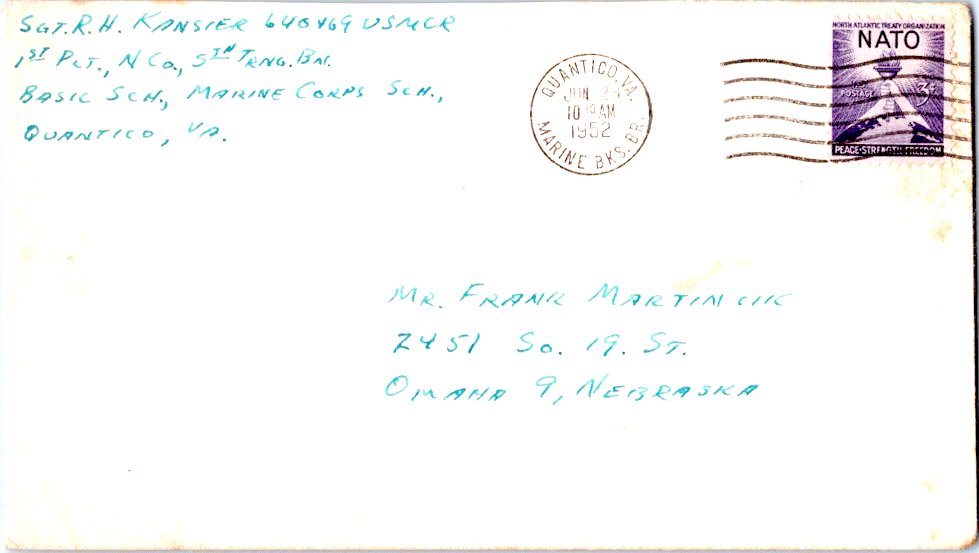 SGT. R. H. KANSIER 640469 USMCR
1ST PLT., N CO., 5TH TRNG. BN.
BASIC SCH., MARINE CORPS SCH.,
QUANTICO, VA.
QUANTICO, VA.
JUN
10 AM
1952
MARINE BKS. BR.
NORTH ATLANTIC TREATY ORGANIZATION
NATO
POSTAGE
3¢
PEACE·STRENGTH·FREEDOM
MR. FRANK
2451 SO. 19. ST.
OMAHA 9, NEBRASKA